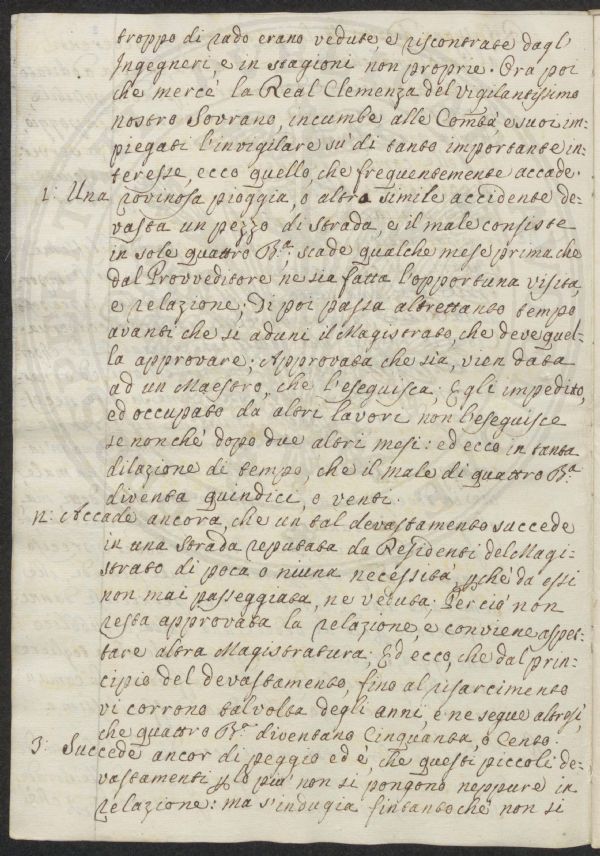 troppo di rado erano vedute, e riscontrate dagl'
Ingegneri, e in stagioni non proprie. Ora poi
che mercè la Real Clemenza del vigilantissimo
nostro Sovrano, incumbe alle Comtà, e suoi im-
piegati l'invigilare su' di tanto importante in-
teresse, ecco quello, che frequentemente accade.
1: Una rovinosa pioggia, o altro simile accidente de-
vasta un pezzo di strada, e il male consiste
in sole quattro Bª; scade qualche mese prima che
dal Provveditore ne sia fatta l'opportuna visita,
e relazione; Di poi passa altrettanto tempo
avanti che si aduni il Magistrato, che deve quel-
la approvare; Approvata che sia, vien data
ad un Maestro, che l'eseguisca; Egli impedito,
ed occupato da altri lavori non l'eseguisce
se nonché dopo due altri mesi: ed ecco in tanta
dilazione di tempo, che il male di quattro Bª
diventa quindici, o venti.
2: Accade ancora, che un tal devastamento succede
in una strada reputata da Residenti del Magi-
strato di poca o niuna necessità, pché da essi
non mai passeggiata, ne veduta; Perciò non
resta approvata la relazione, e conviene aspet-
tare altra Magistratura; Ed ecco, che dal prin-
cipio del devastamento, fino al risarcimento
vi corrono talvolta degli anni, e ne segue altresì,
che quattro Bª diventano Cinquanta, o Cento.
3: Succede ancor di peggio ed è, che questi piccoli de-
vastamenti p lo più non si pongono neppure in
relazione: ma s'indugia fintantoché non si